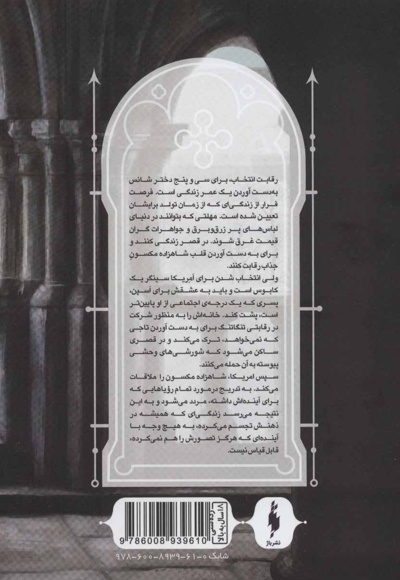 رقابت انتخاب، برای سی و پنج دختر شانس
به‌دست آوردن یک عمر زندگی است. فرصت
فرار از زندگی‌ای که از زمان تولد برایشان
تعیین شده است. مهلتی که بتوانند در دنیای
لباس‌های پر زرق‌وبرق و جواهرات گران
قیمت غرق شوند. در قصر زندگی کنند و
برای به دست آوردن قلب شاهزاده مکسون
جذاب رقابت کنند.
ولی انتخاب شدن برای آمریکا سینگر یک
کابوس است و باید به عشقش برای اسپن،
پسری که یک درجه‌ی اجتماعی از او پایین‌تر
است، پشت کند. خانه‌اش را به منظور شرکت
در رقابتی تنگاتنگ برای به دست آوردن تاجی
که نمی‌خواهد، ترک می‌کند و در قصری
ساکن می‌شود که شورشی‌های وحشی
پیوسته به آن حمله می‌کنند.
سپس آمریکا، شاهزاده مکسون را ملاقات
می‌کند. به تدریج درمورد تمام رؤیاهایی که
برای آینده‌اش داشته، مردد می‌شود و به این
نتیجه می‌رسد زندگی‌ای که همیشه در
ذهنش تجسم می‌کرده، به هیچ وجه با
آینده‌ای که هرگز تصورش را هم نمی‌کرده،
قابل قیاس نیست.
رده سنی
۱۸ سال به بالا
9 786008 939610
شابک ۰-۶۱-۸۹۳۹-۶۰۰-۹۷۸
نشر باژ